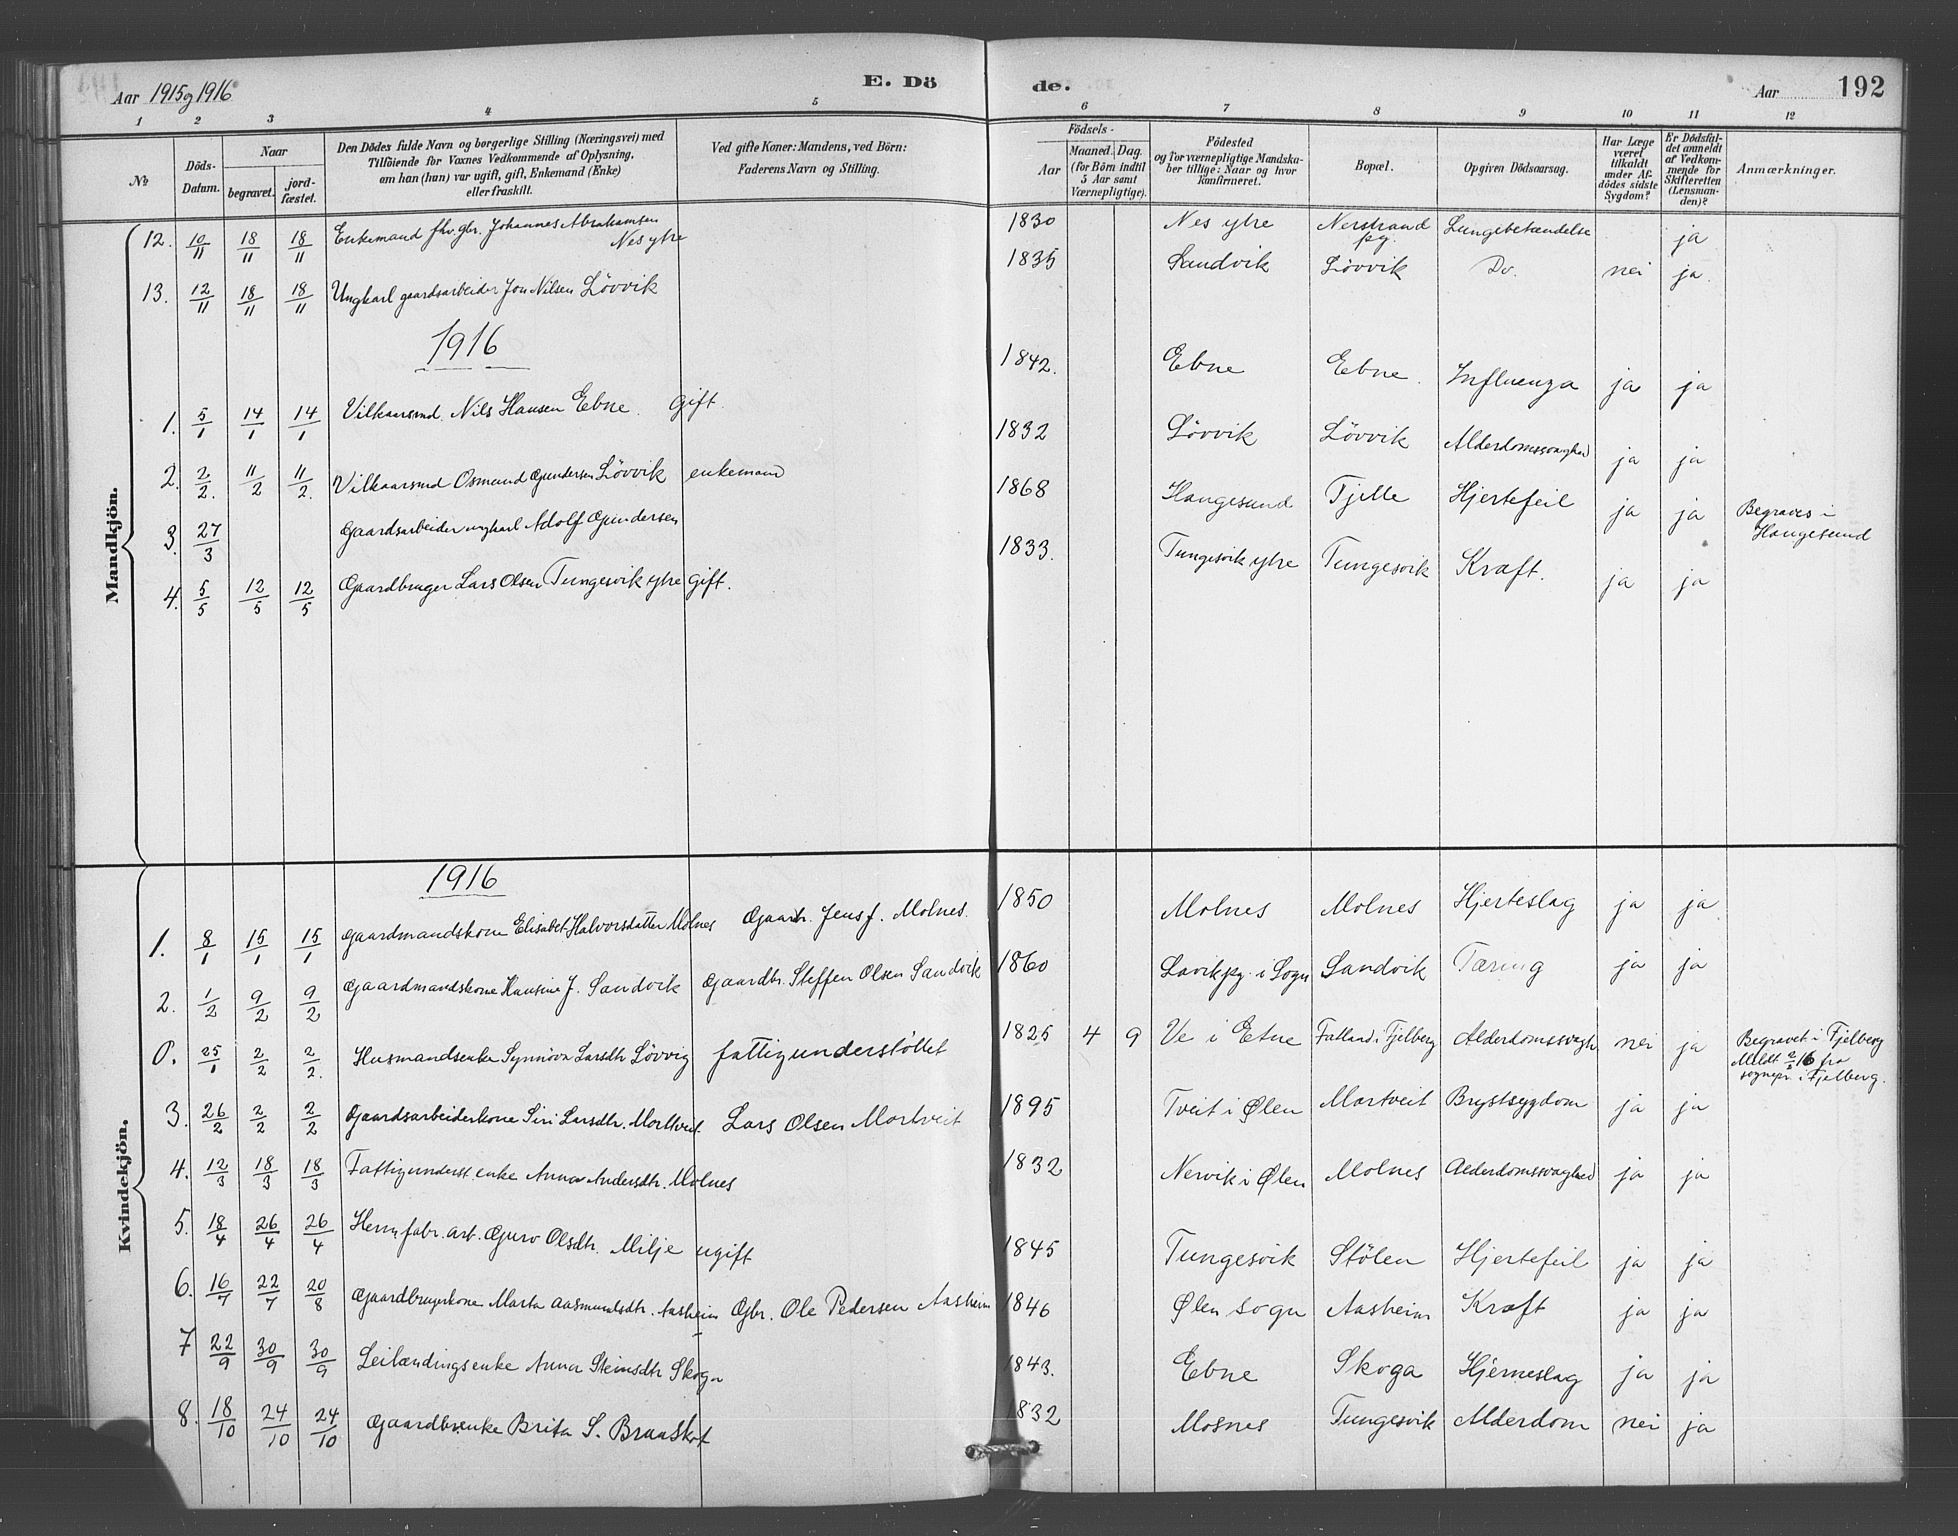 Aar 1915 og 1916 E. Dö de. Aar 192
1 2 3 4 5 6 7 8 9 10 11 12
№ Döds-Datum. Naar begravet. jord-fæstet. Den Dödes fulde Navn og borgerlige Stilling (Næringsvei) med Tilföiende for Voxnes Vedkommende af Oplysning, om han (hun) var ugift, gift, Enkemand (Enke) eller fraskilt. Ved gifte Koner: Mandens, ved Börn: Faderens Navn og Stilling. Födsels- Aar Maaned. Dag. (for Börn indtil 5 Aar samt Værnepligtige). Födested og for værnepligtige Mandskaber tillige: Naar og hvor konfirmeret. Bopæl. Opgiven Dödsaarsag. Har Læge været tilkaldt under Afdödes sidste Sygdom? Er Dödsfaldet anmeldt af Vedkommende for Skifteretten (Lensmanden)? Anmærkninger.
Mandkjön.
12. 10/11 18/11 18/11 Enkemand fhv. gbr. Johannes Abrahamsen Nes ytre 1830 Nes ytre Nerstrand pg. Lungebetændelse ja
13. 12/11 18/11 18/11 Ungkarl gaardsarbeider Jon Nilsen Lövvik 1835 Sandvik Lövvik Do. nei ja.
1916
1. 5/1 14/1 14/1 Vilkaarsmd. Nils Hansen Ebne. Gift. 1842. Ebne Ebne. Influenza ja ja
2. 2/2. 11/2 11/2. Vilkaarsmd Osmund Gundersen Lövvik enkemand 1832 Lövvik Lövvik Alderdomssvaghed ja ja
3. 27/3 Gaardsarbeider ungkarl Adolf Gundersen 1868 Haugesund Tjelle Hjertefeil ja ja Begraves i Haugesund
4. 5/5 12/5 12/5 Gaardbruger Lars Olsen Tungesvik ytre Gift. 1833. Tungesvik ytre Tungesvik Kræft. ja ja
Kvindekjön.
1916
1. 8/1 15/1 15/1 Gaardmandskone Elisabet Halvorsdatter Molnes Gaardbr. Jens J. Molnes. 1850 Molnes Molnes Hjerteslag ja ja
2. 1/2 9/2 9/2 Gaardmandskone Hansine J. Sandvik Gaardbr. Steffen Olsen Sandvik 1860 Lavik pg. i Sogn Sandvik Tæring ja ja
0. 25/1 2/2 2/2. Husmandsenke Synnöva Larsdtr Lövvig fattigunderstöttet 1825 4 9 Ve i Etne Fatland i Fjelberg Alderdomssvagh. nei ja Begravet i Fjelberg Meldt 2/2 16 fra sognepr. i Fjelberg.
3. 26/2 2/2 2/2 Gaardsarbeiderkone Siri Larsdtr. Mortveit. Lars Olsen Mortveit 1895 Tveit i Ølen Mortveit Brystsygdom ja ja
4. 12/3 18/3 18/3 Fattigunderst. enke Anna Andersdtr. Molnes 1832 Nervik i Ølen Molnes Alderdomssvaghed ja ja
5. 18/4 26/4 26/4 Herm. fabr. arb. Guro Olsdtr. Milje ugift 1845 Tungesvik Stölen Hjertefeil ja ja
6. 16/7 22/7 20/8 Gaardbrugerkone Marta Aasmundsdtr. Aasheim Gbr. Ole Pedersen Aasheim 1846 Ølen sogn Aasheim Kræft ja ja
7 22/9 30/9 30/9 Leilændingsenke Anna Steinsdtr Skoga 1843. Ebne Skoga Hjerneslag ja ja
8. 18/10 24/10 24/10 Gaardbr.enke Brita S. Braaskot 1832 Mosnes Tungesvik Alderdom nei ja